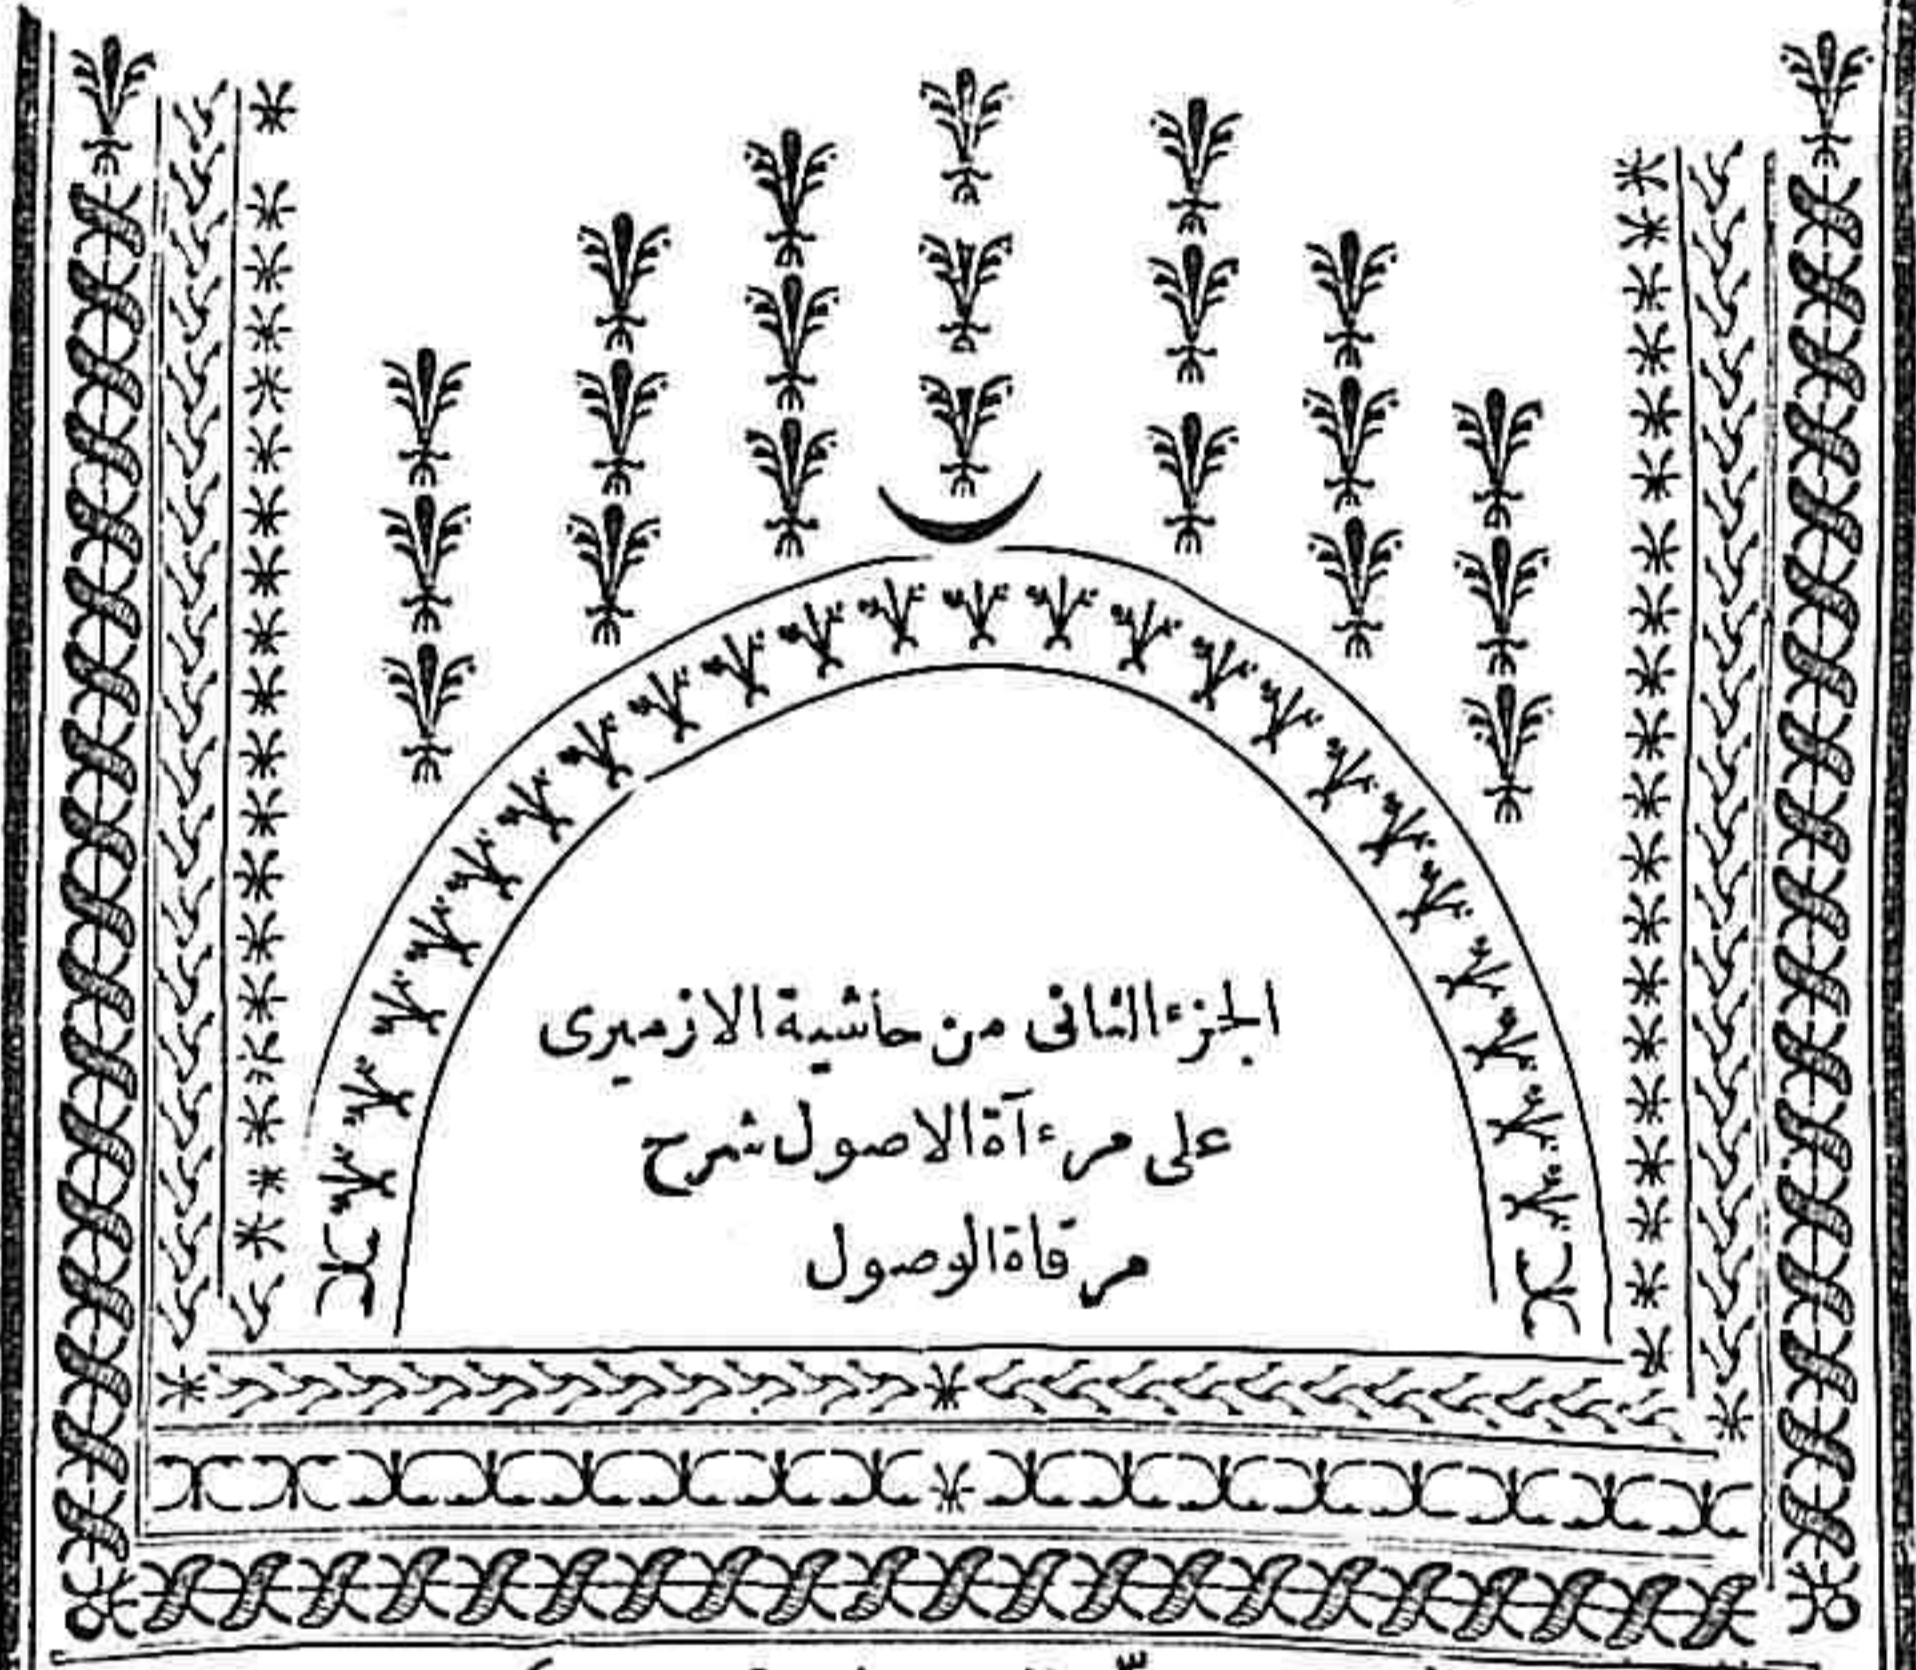 الجزء الثانى من حاشية الازميرى
على مرءآة الاصول شرح
مرقاة الوصول